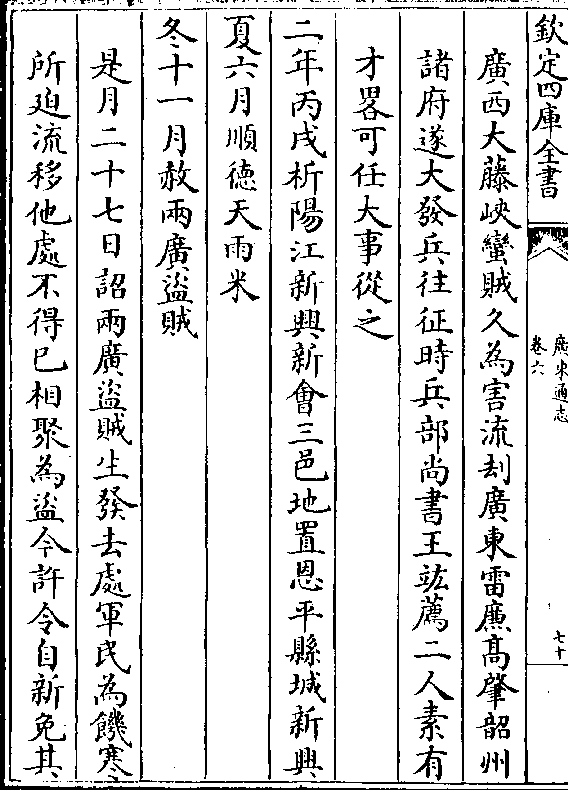 欽定四庫全書
廣東通志
卷六
七十
廣西大藤峽蠻賊久為害流刦廣東雷廉髙肇韶州
諸府遂大發兵往征時兵部尚書王竑薦二人素有
才畧可任大事從之
二年丙戌析陽江新興新會三邑地置恩平縣城新興
夏六月順德天雨米
冬十一月赦兩廣盜賊
是月二十七日詔兩廣盜賊生發去處軍民為饑寒
所廹流移他處不得已相聚為盜今許令自新免其